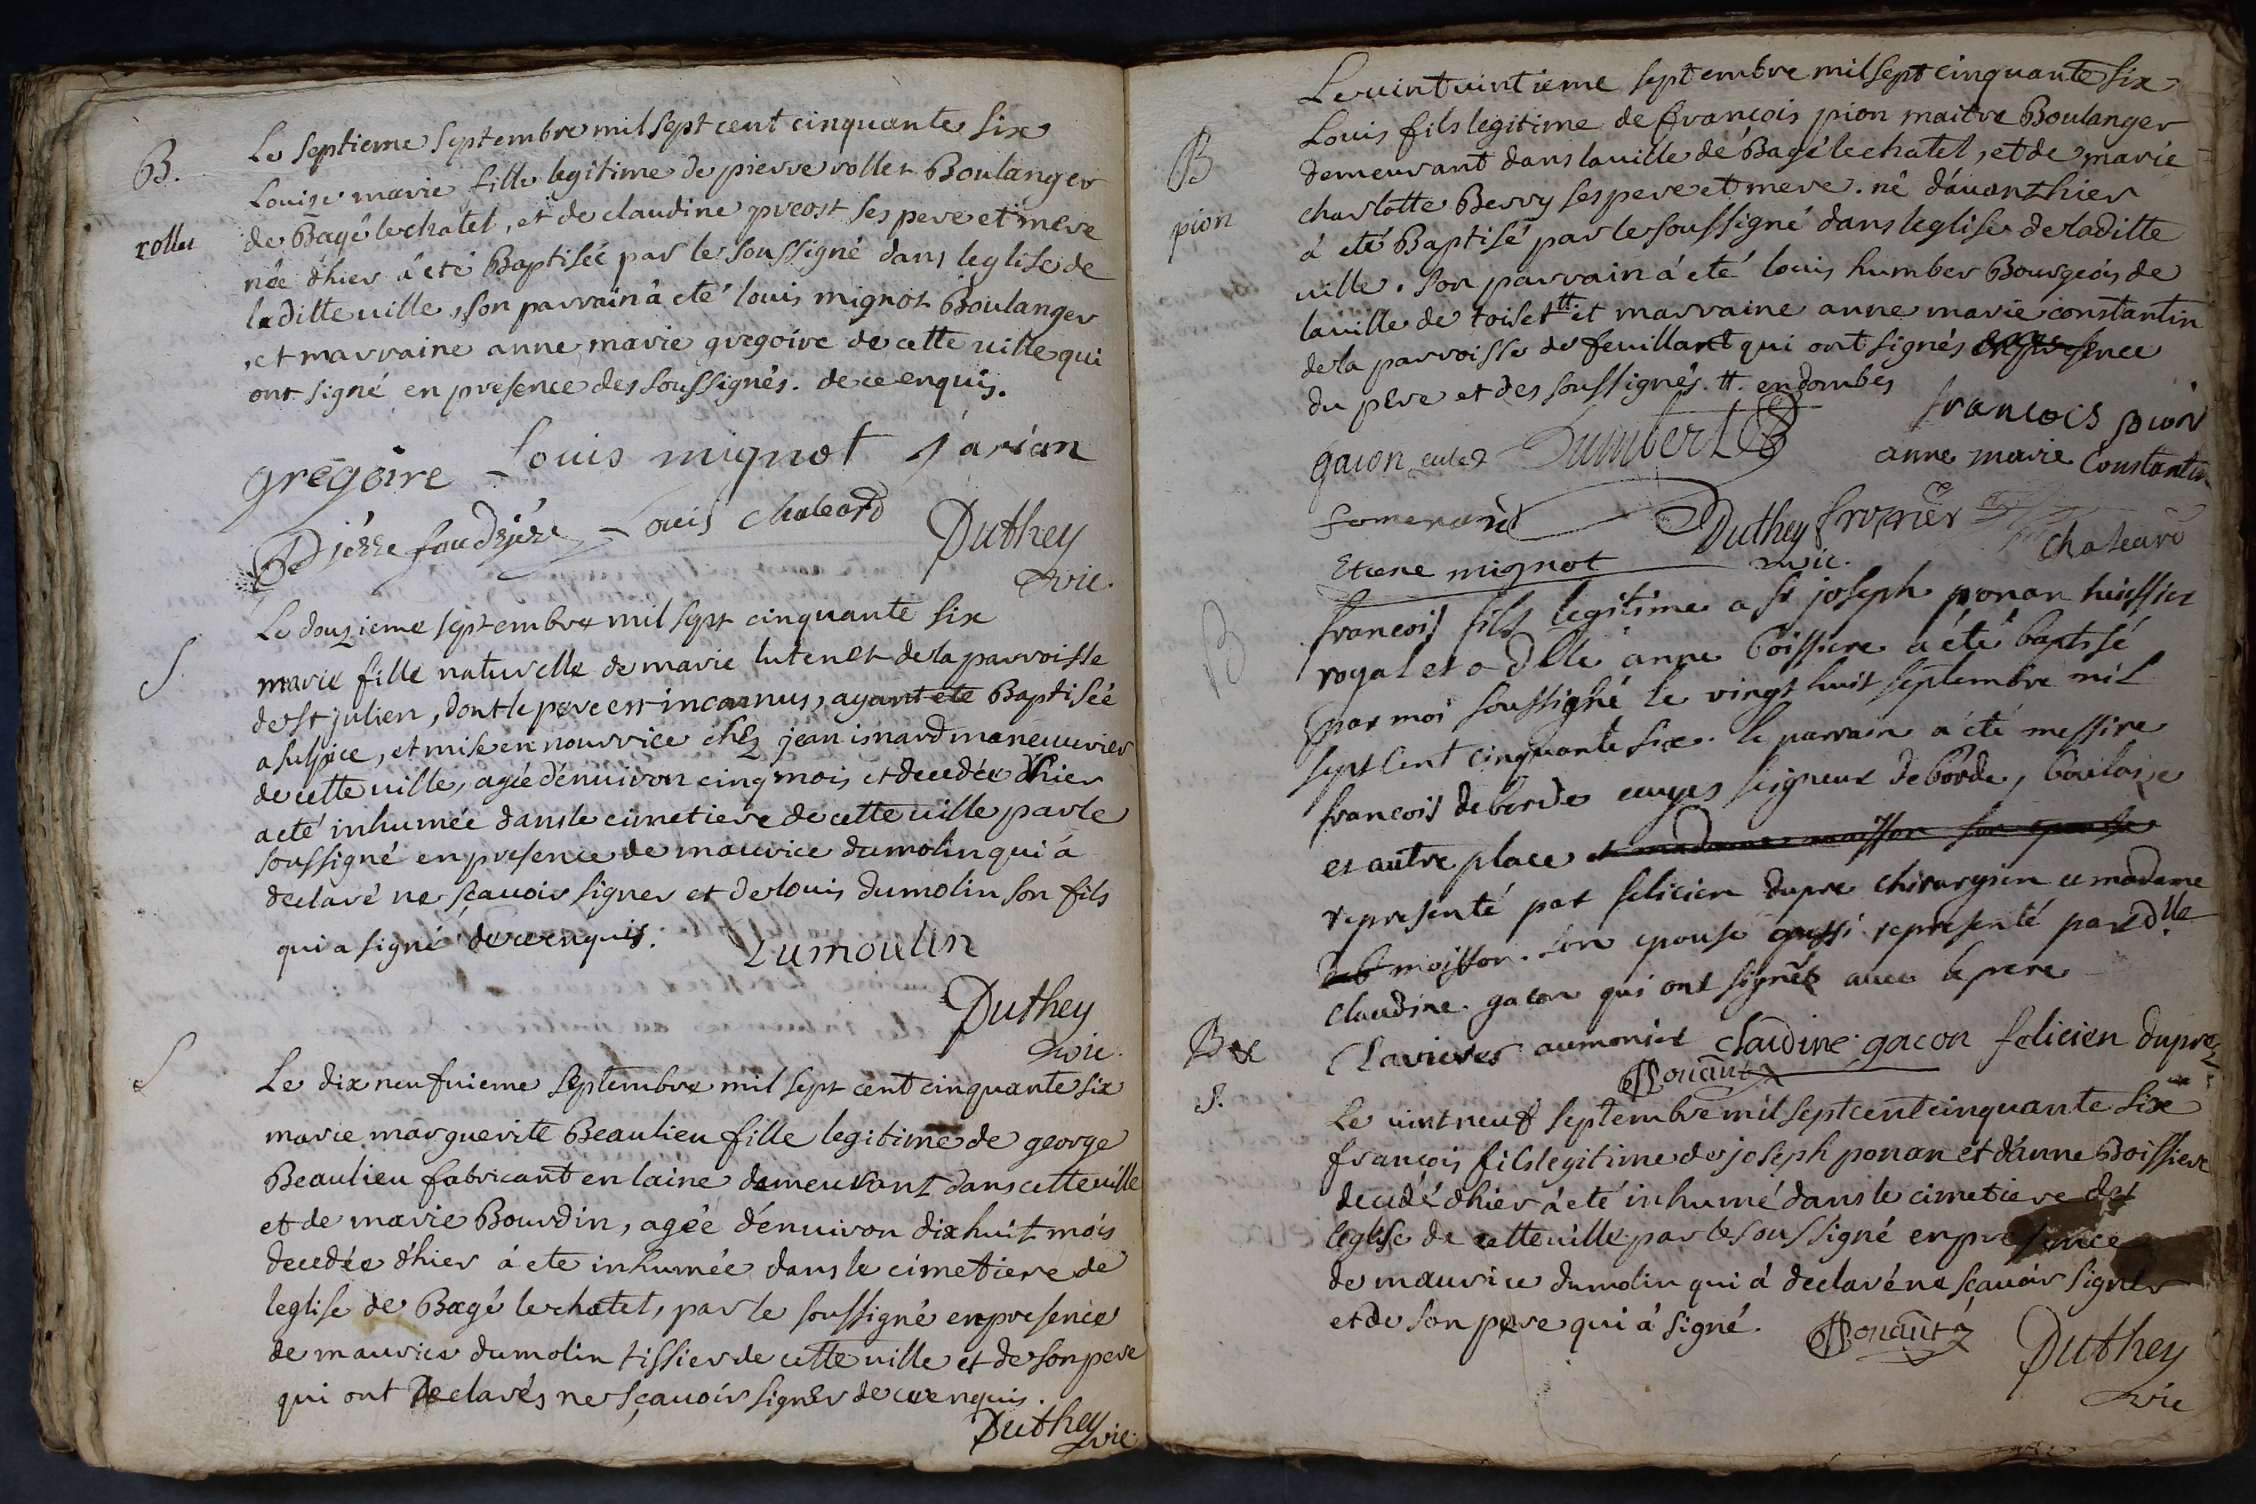 B.
rollet
Le septieme septembre mil sept cent cinquante six
Louise marie fille legitime de pierre rollet Boulanger
de Bagé le chatel, et de claudine preost ses pere et mere
née d'hier à eté Baptisée par le soussigné dans leglise de
laditte uille, son parrain à eté louis mignot Boulanger
, et marraine anne marie gregoire de cette uille qui
ont signé en presence des soussignés. de ce enquis.
grégoire Louis mignot Jarian
Louis Chaleard
Duthey
vic.
S.
Le douzieme septembre mil sept cinquante six
marie fille naturelle de marie lutenet de la parroisse
de st julien, dont le pere est inconnus, ayant eté Baptisée
a sulpice, et mise en nourrice chez jean isnard maneuurier
de cette uille, agée d'enuiron cinq mois et decedée d'hier
a eté inhumée dans le cimetiere de cette uille par le
soussigné en presence de maurice dumolin qui à
declaré ne sçauoir signer et de louis dumolin son fils
qui a signé de ce enquis.
Dumoulin
Duthey
vic.
S
Le dix neufuieme septembre mil sept cent cinquante six
marie marguerite Beaulieu fille legitime de george
Beaulieu fabricant en laine demeurant dans cette uille
et de marie Bourdin, agée d'enuiron dix huit mois
decedée d'hier à eté inhumée dans le cimetiere de
leglise de Bagé le chatel, par le soussigné en presence
de maurice dumolin tissier de cette uille et de son pere
qui ont declarés ne sçauoir signer de ce enquis.
Duthey
vic.
B
pion
Le uint uintieme septembre mil sept cinquante six
Louis fils legitime de françois pion maitre Boulanger
demeurant dans la uille de Bagé le chatel, et de marie
charlotte Berry ses pere et mere. né d'auant hier
à eté Baptisé par le soussigné dans leglise de laditte
uille. son parrain à eté louis humber Bourgeois de
la uille de toisets # et marraine anne marie constantin
de la parroisse de feuillant qui ont signés en presence
du pere et des soussignés. #. en dombes
francois pion
gacon Humbert
anne marie Constantin
Duthey
vic.
Etiene mignot
chaleard
B
francois fils legitime a sr joseph ponan huissier
royal et a dlle anne boissiere a été baptisé
par moi soussigné le vingt huit septembre mil
sept cent cinquante six. le parrain a été messire
francois de borde ecuyer seigneur de borde,
et autre place et madame moisson son epouse
representé par felicien dupre chirurgien et madame
de b moisson. son epouse aussi representé par dlle
claudine gacon qui ont signés auec le pere
Clavieres aumonier claudine gacon felicien dupre
Ponant
B et
S.
Le uint neuf septembre mil sept cent cinquante six
françois fils legitime de joseph ponan et d'anne Boissiere
decedé d'hier à eté inhumé dans le cimetiere de
leglise de cette uille par le soussigné en presence
de maurice dumolin qui à declaré ne sçauoir signer
et de son pere qui à signé.
Ponant
Duthey
vic